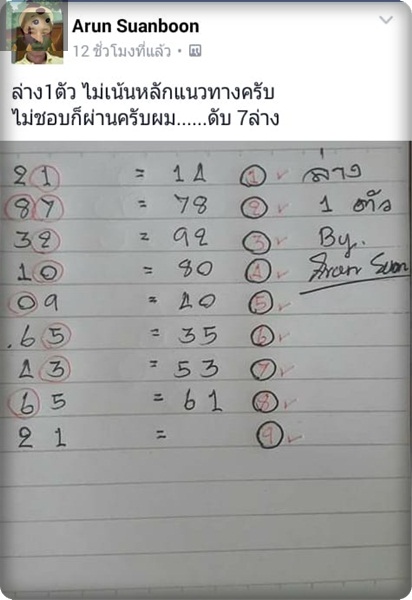 Arun Suanboon
12 ชั่วโมงที่แล้ว
ล่าง1ตัว ไม่เน้นหลักแนวทางครับ
ไม่ชอบก็ผ่านครับผม......ดับ 7ล่าง
21 = 14 1 ล่าง
87 = 78 2 1 ตัว
32 = 92 3 By.
10 = 80 4 Arun Suan
09 = 40 5
.65 = 35 6
43 = 53 7
65 = 61 8
21 = 9